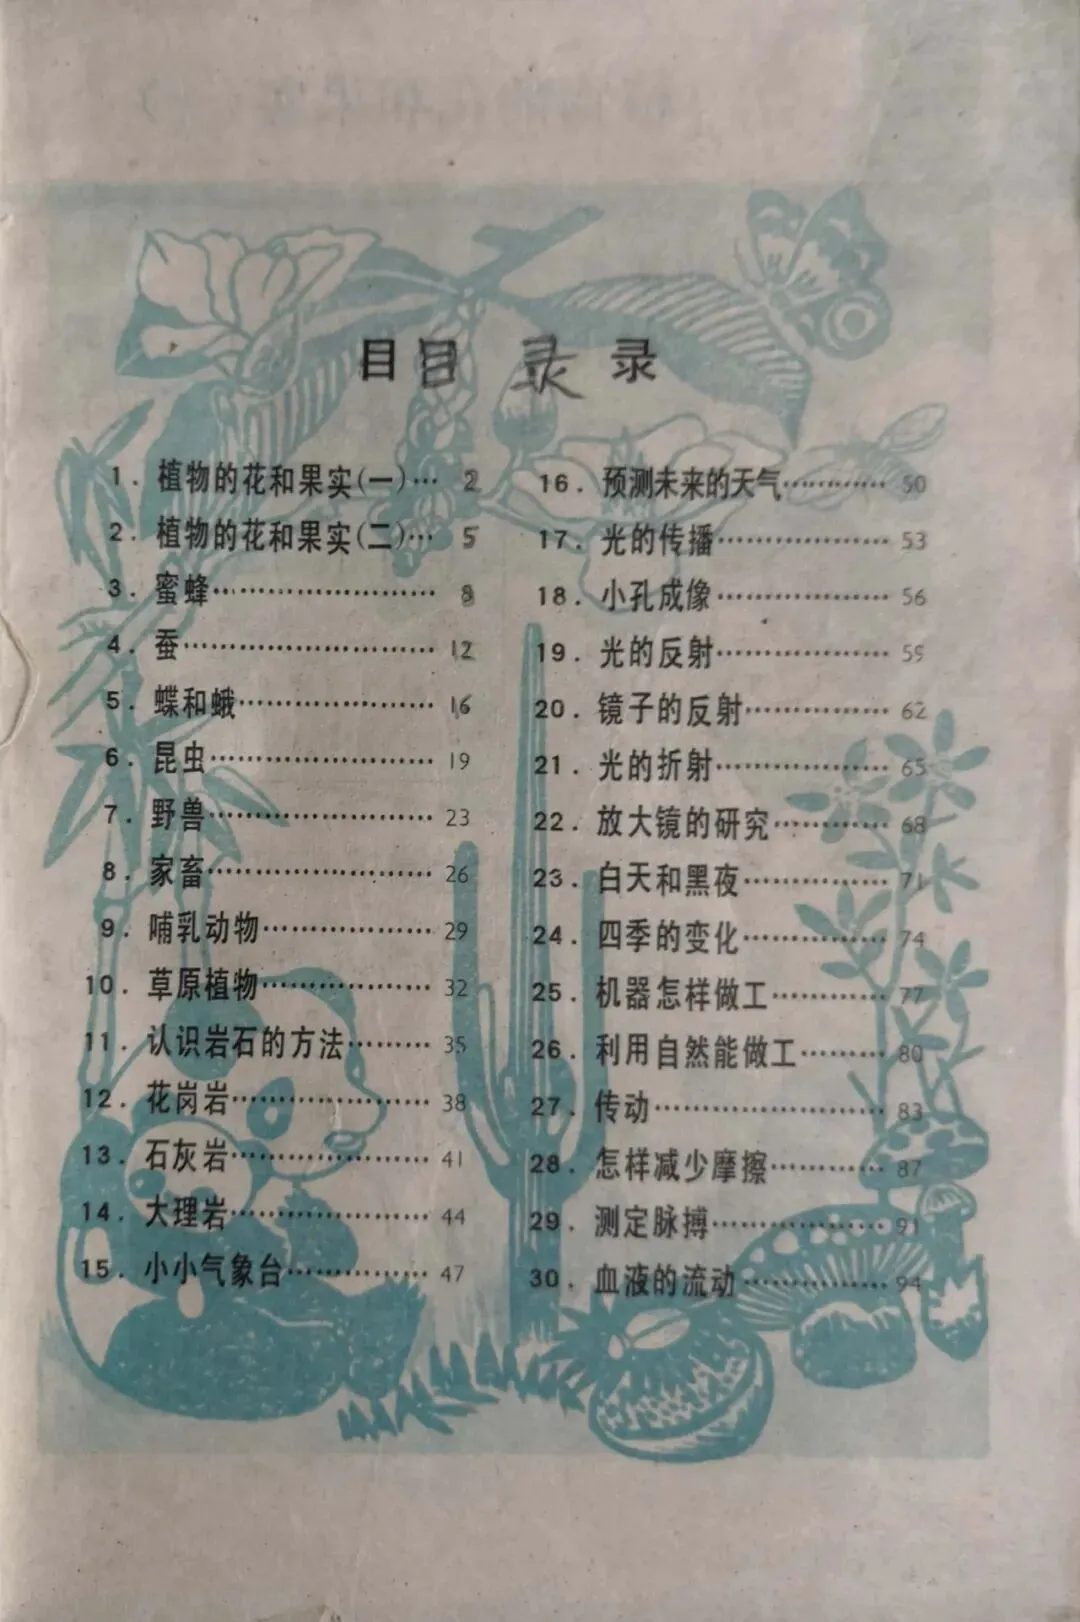 目目 录 录
1. 植物的花和果实(一)… 2
2. 植物的花和果实(二)… 5
3. 蜜蜂…………………… 8
4. 蚕……………………… 12
5. 蝶和蛾………………… 16
6. 昆虫…………………… 19
7. 野兽…………………… 23
8. 家畜…………………… 26
9. 哺乳动物……………… 29
10. 草原植物……………… 32
11. 认识岩石的方法……… 35
12. 花岗岩………………… 38
13. 石灰岩………………… 41
14. 大理岩………………… 44
15. 小小气象台…………… 47
16. 预测未来的天气……… 50
17. 光的传播……………… 53
18. 小孔成像……………… 56
19. 光的反射……………… 59
20. 镜子的反射…………… 62
21. 光的折射……………… 65
22. 放大镜的研究………… 68
23. 白天和黑夜…………… 71
24. 四季的变化…………… 74
25. 机器怎样做工………… 77
26. 利用自然能做工……… 80
27. 传动…………………… 83
28. 怎样减少摩擦………… 87
29. 测定脉搏……………… 91
30. 血液的流动…………… 94